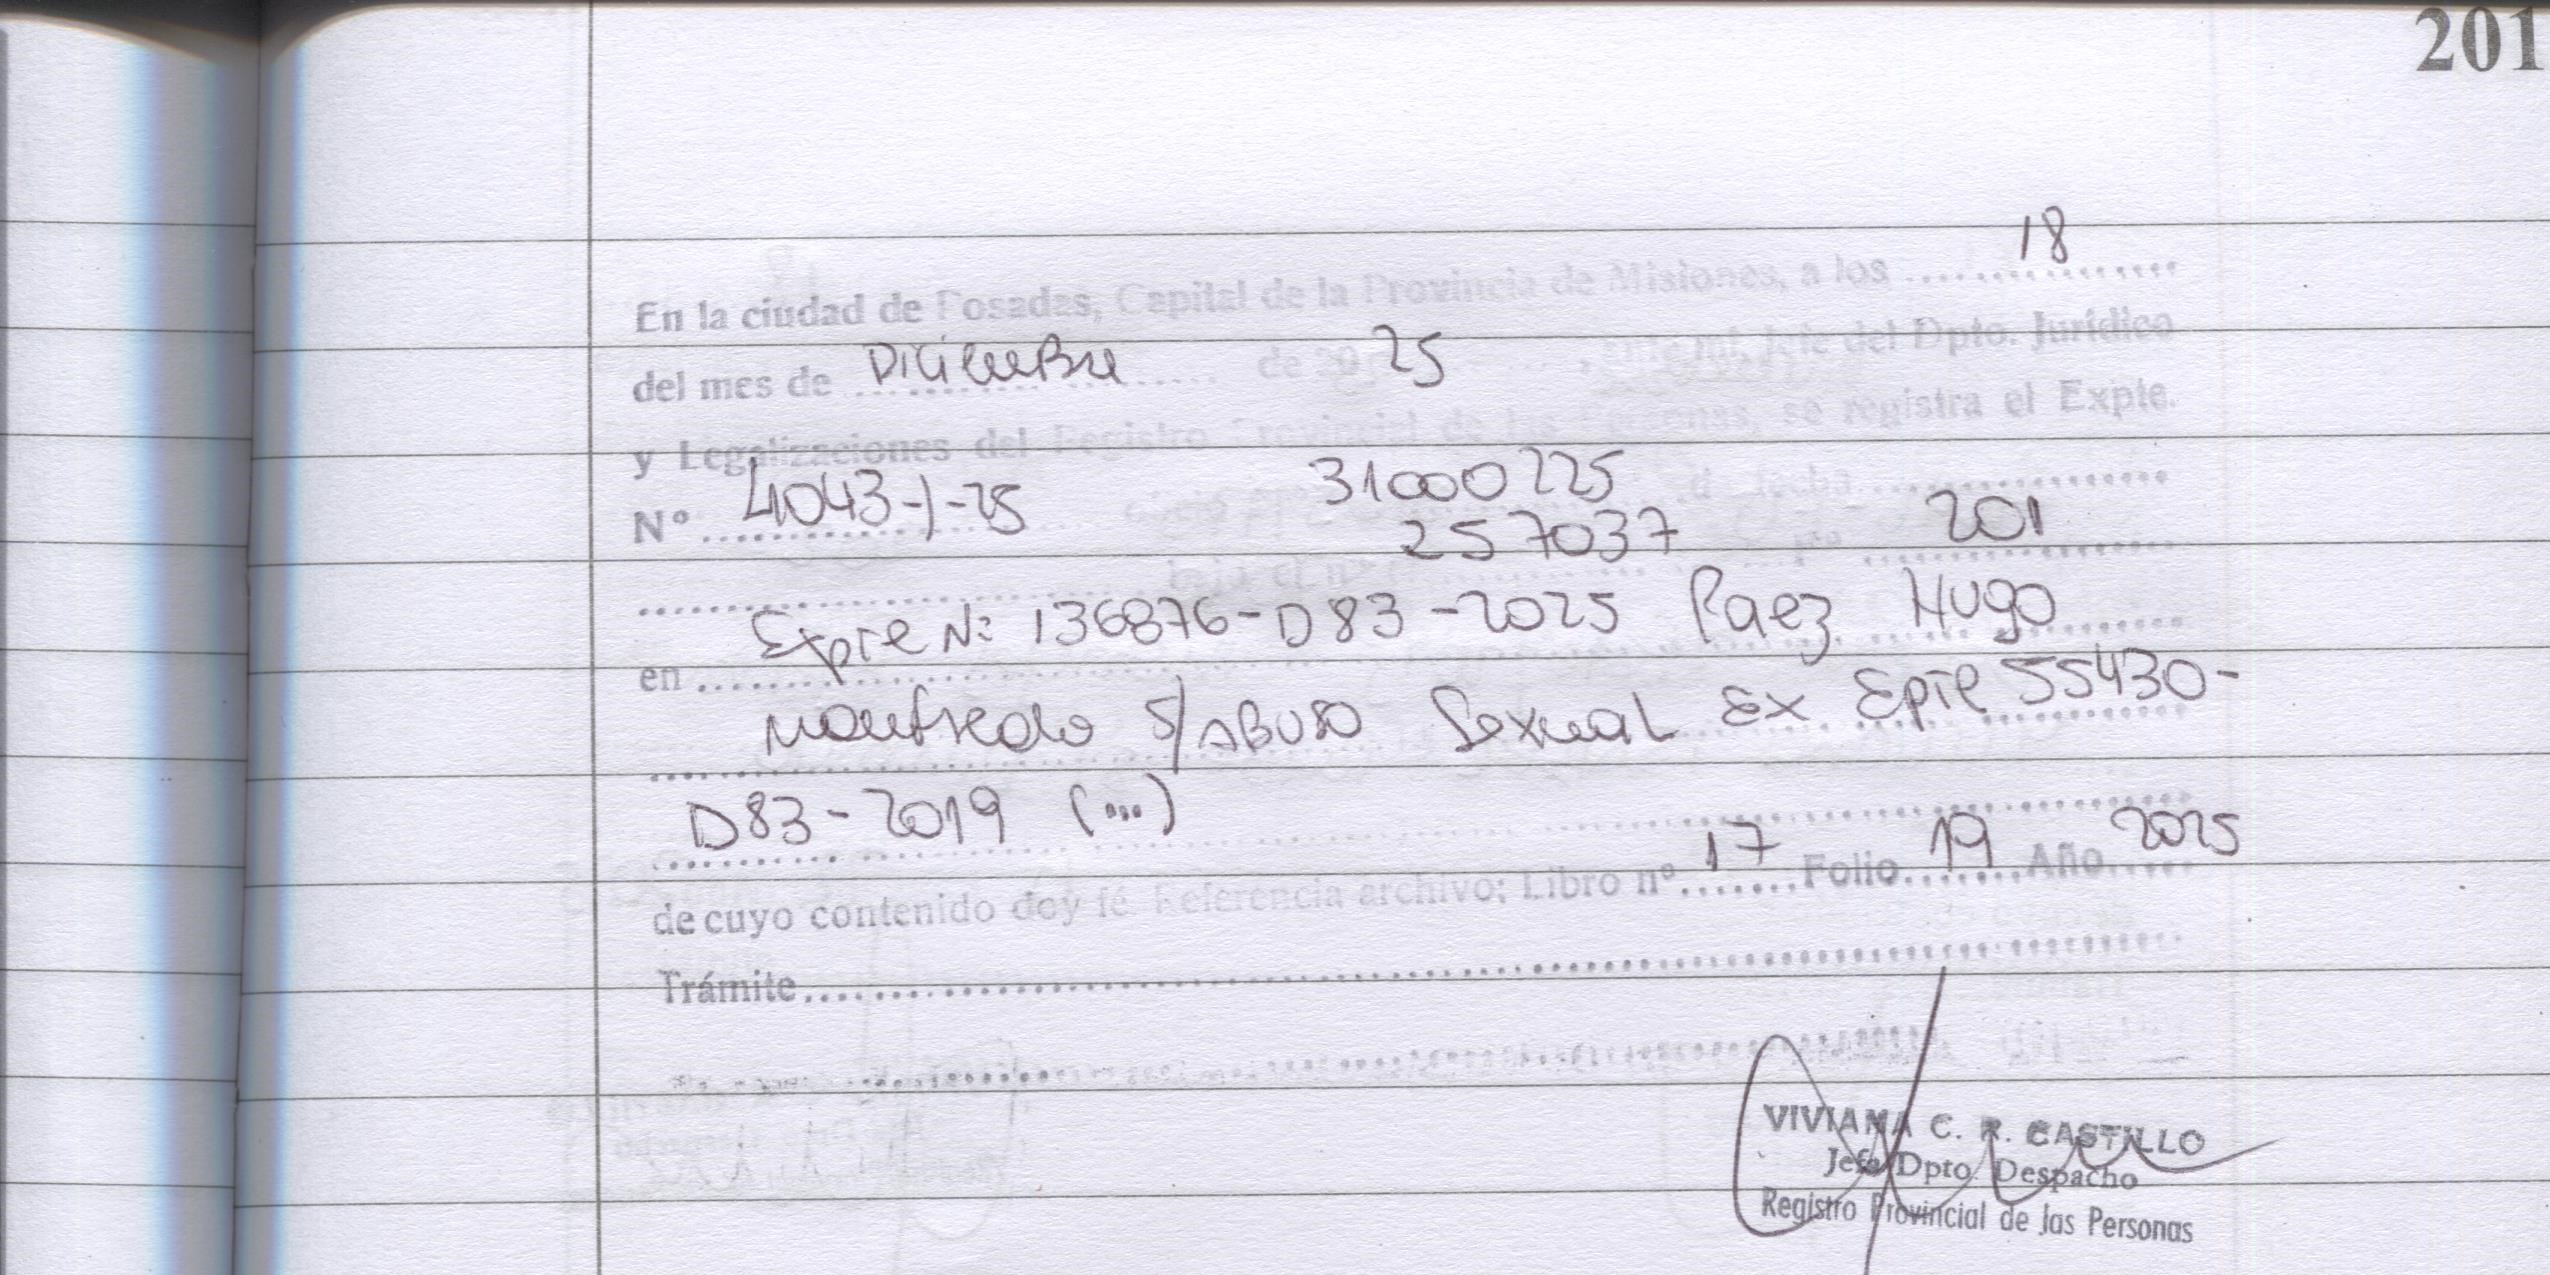 201
18
En la ciudad de Posadas, Capital de la Provincia de Misiones, a los ................
del mes de Diciembre de 20 25, ante mi, Jefe del Dpto. Jurídico
y Legalizaciones del Registro Provincial de las Personas, se registra el Expte.
Nº 4043-1-25 31000225
257037 201
Expte Nº: 136876-D83-2025 Paez Hugo
en
Manfredo S/ABUSO Sexual Ex Epte 55430-
D83-2019 (...)
de cuyo contenido doy fé. Referencia archivo; Libro nº 17 Folio 19 Año 2025
Trámite
VIVIANA C. R. CASTILLO
Jefa Dpto. Despacho
Registro Provincial de las Personas